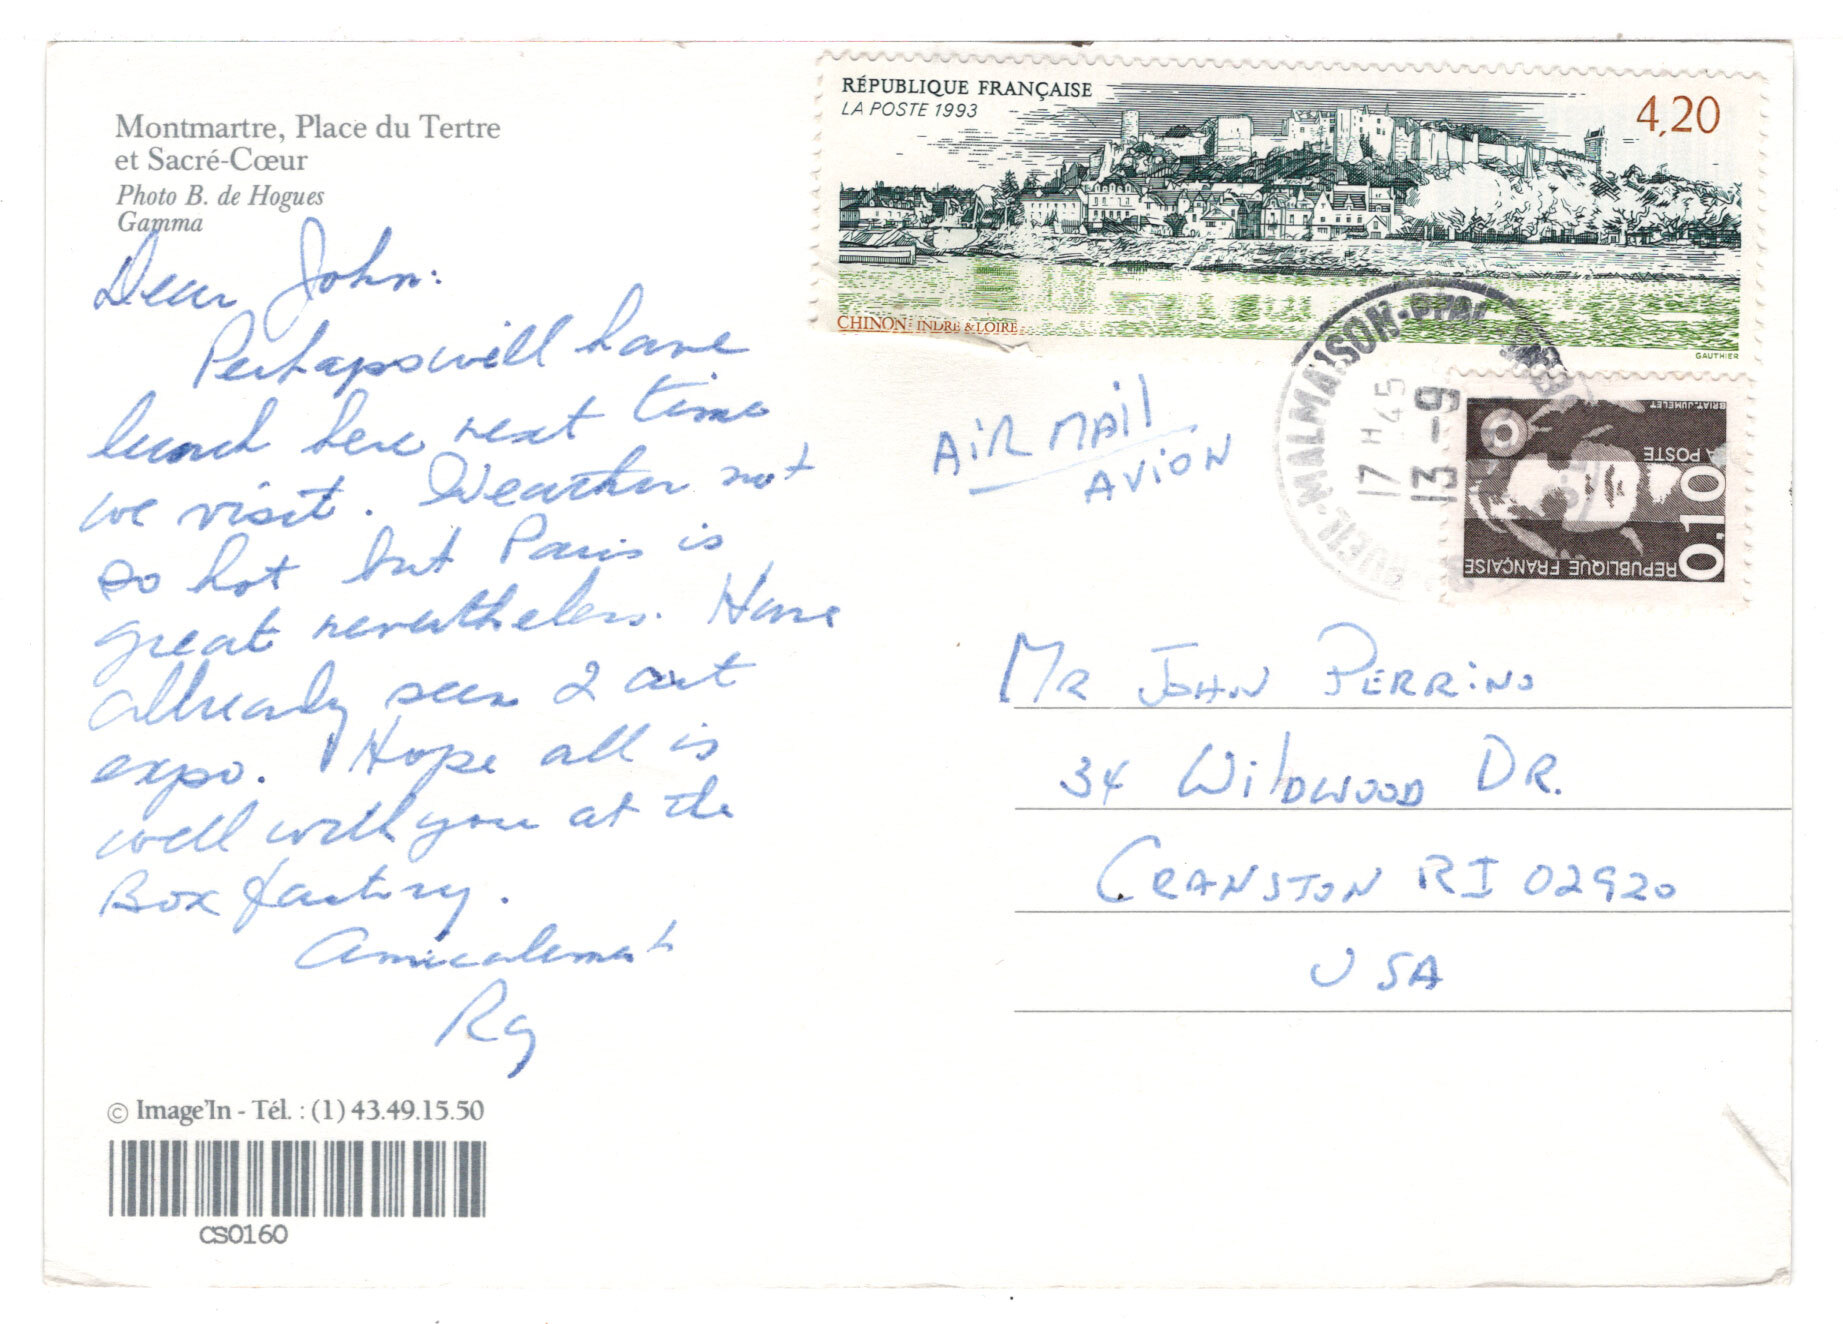 Montmartre, Place du Tertre
et Sacré-Cœur
Photo B. de Hogues
Gamma
Dear John:
Perhaps will have
lunch here next time
we visit. Weather not
so hot but Paris is
great nevertheless. Have
already seen 2 art
expo. Hope all is
well with you at the
Box factory.
Amicalement
Rg
© Image'In - Tél. : (1) 43.49.15.50
CS0160
RÉPUBLIQUE FRANÇAISE
LA POSTE 1993
4,20
CHINON - INDRE & LOIRE
GAUTHIER
RUEIL-MALMAISON-PPAL
17 H 45
13-9
BRIAT-JUMELET
LA POSTE
0.10
REPUBLIQUE FRANÇAISE
AIR MAIL
AVION
MR JOHN PERRINO
34 WILDWOOD DR.
CRANSTON RI 02920
USA